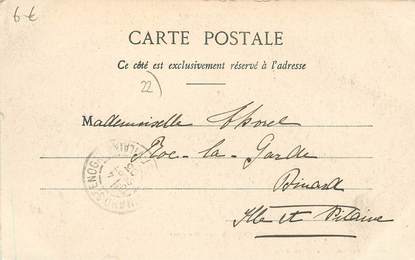 6€
CARTE POSTALE
Ce côté est exclusivement réservé à l'adresse
22
Mademoiselle
Roc-la-Garde
Dinard
Ille et Vilaine